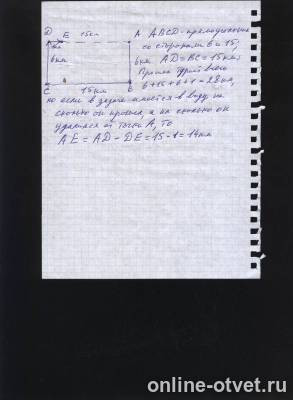 D E 15км A ABCD - прямоугольник
со сторонами 6 и 15,
6км AD = BC = 15км,
Прошел турист всего
C 15км B 6+15+6+1=28км,
но если в задаче имеется в виду, не
сколько он прошел, а на сколько он
удалился от точки A, то
AE = AD - DE = 15 - 1 = 14км
online-otvet.ru